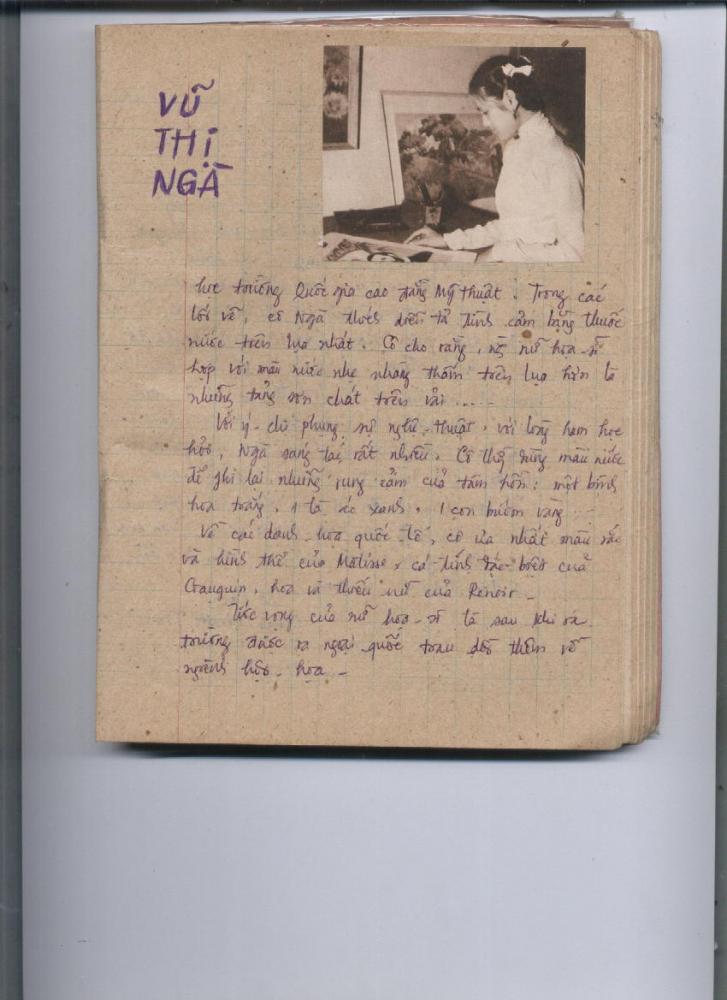 VŨ
THỊ
NGÀ
học trường Quốc gia cao đẳng Mỹ thuật. Trong các
lối vẽ, cô Ngà thích diễn tả tình cảm bằng thuốc
nước trên lụa nhất. Cô cho rằng, nữ họa-sĩ
hợp với màu nước nhẹ nhàng thấm trên lụa hơn là
những tảng sơn chát trên vải ....
Với ý-chí phụng sự nghệ-thuật, với lòng ham học
hỏi, Ngà sáng tác rất nhiều. Cô thg dùng màu nước
để ghi lại những rung cảm của tâm hồn: một bông
hoa trắng, 1 lá úa xanh, 1 con bướm vàng...
Về các danh-họa quốc tế, cô ưa nhất màu sắc
và hình thể của Matisse, cá tính đặc-biệt của
Gauguin, hoa và thiếu nữ của Renoir -
Ước vọng của nữ họa-sĩ là sau khi ra
trường được ra ngoại-quốc trau dồi thêm về
ngành hội-họa -